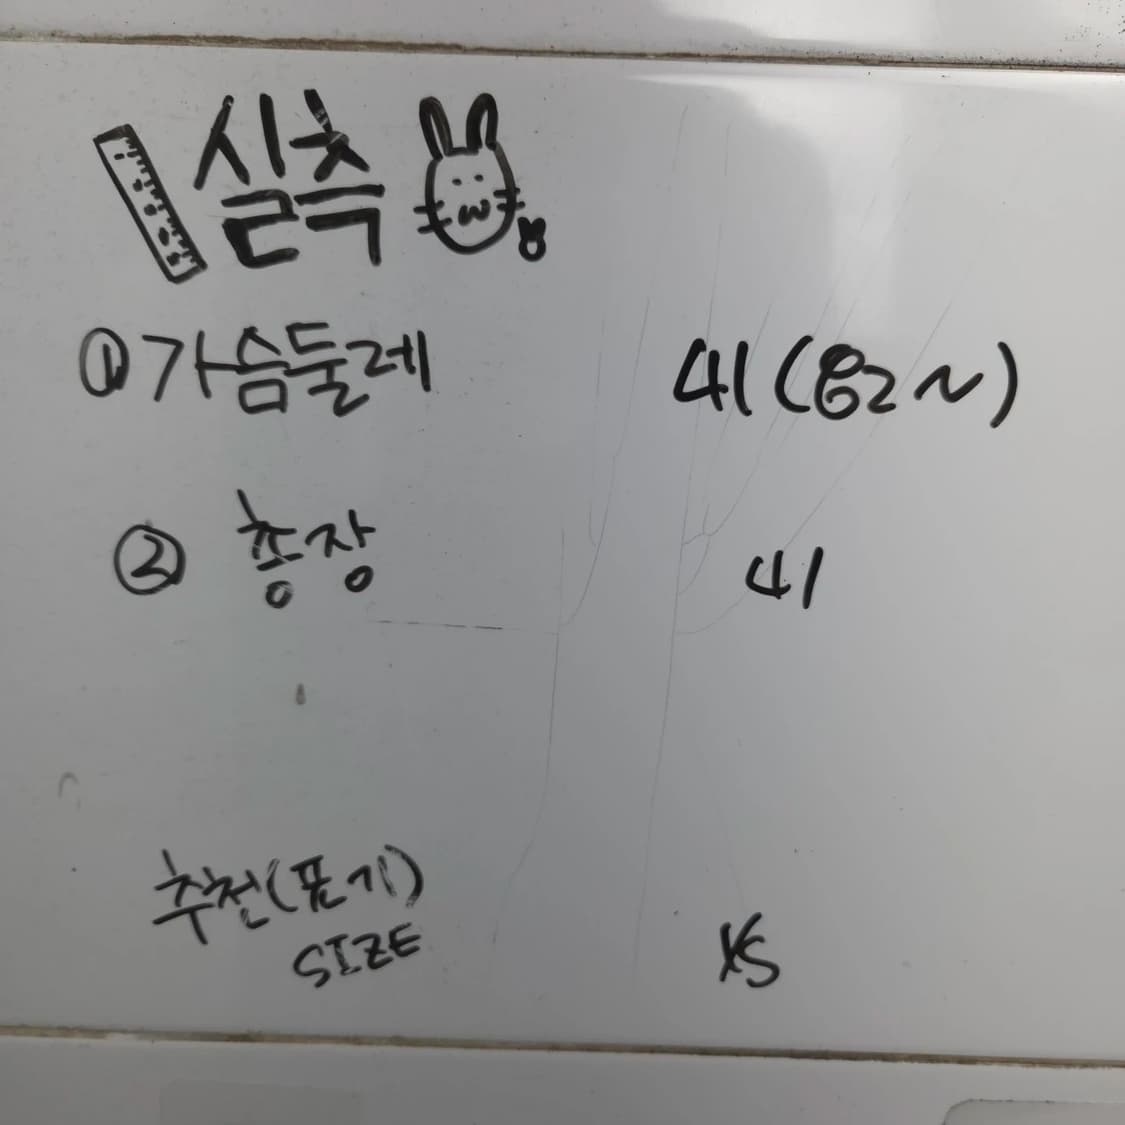 실측
①가슴둘레 41(82~)
② 총장 41
추천(표기)
SIZE XS